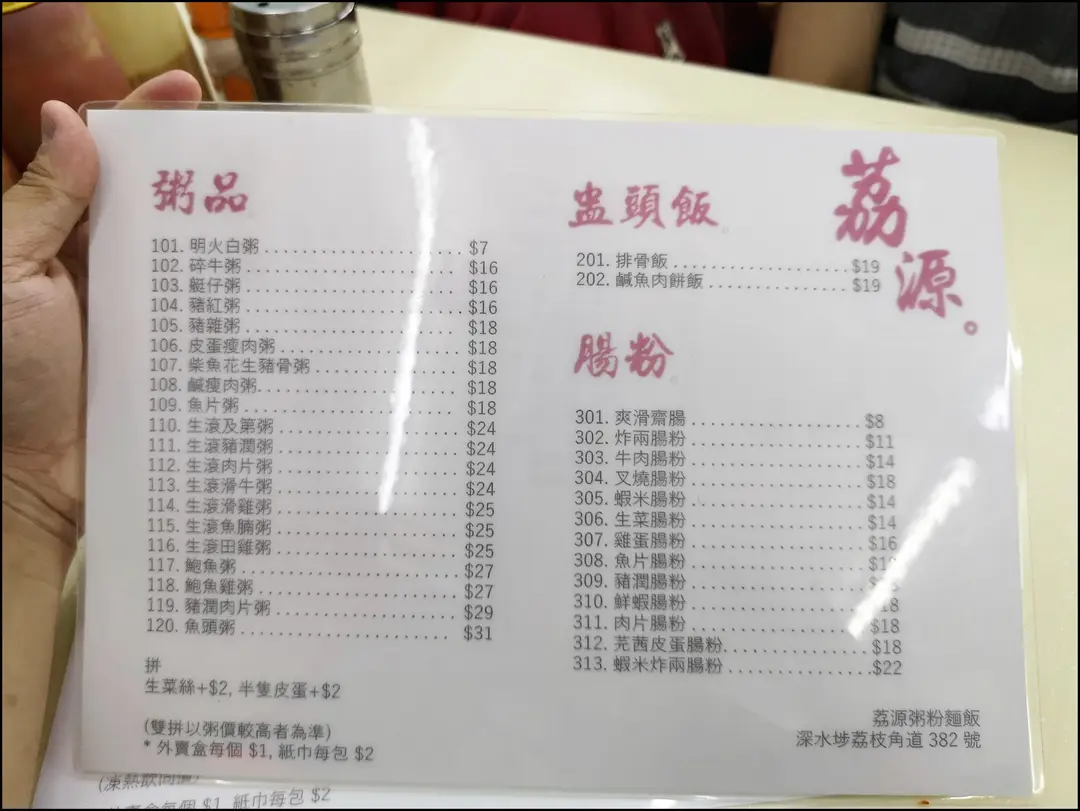 粥品
101. 明火白粥 $7
102. 碎牛粥 $16
103. 艇仔粥 $16
104. 豬紅粥 $16
105. 豬雜粥 $18
106. 皮蛋瘦肉粥 $18
107. 柴魚花生豬骨粥 $18
108. 鹹瘦肉粥 $18
109. 魚片粥 $18
110. 生滾及第粥 $24
111. 生滾豬潤粥 $24
112. 生滾肉片粥 $24
113. 生滾滑牛粥 $24
114. 生滾滑雞粥 $25
115. 生滾魚腩粥 $25
116. 生滾田雞粥 $25
117. 鮑魚粥 $27
118. 鮑魚雞粥 $27
119. 豬潤肉片粥 $29
120. 魚頭粥 $31
拼
生菜絲+$2, 半隻皮蛋+$2
(雙拼以粥價較高者為準)
* 外賣盒每個 $1, 紙巾每包 $2
盅頭飯
201. 排骨飯 $19
202. 鹹魚肉餅飯 $19
腸粉
301. 爽滑齋腸 $8
302. 炸兩腸粉 $11
303. 牛肉腸粉 $14
304. 叉燒腸粉 $18
305. 蝦米腸粉 $14
306. 生菜腸粉 $14
307. 雞蛋腸粉 $16
308. 魚片腸粉
309. 豬潤腸粉
310. 鮮蝦腸粉
311. 肉片腸粉 $18
312. 芫茜皮蛋腸粉 $18
313. 蝦米炸兩腸粉 $22
荔源。
荔源粥粉麵飯
深水埗荔枝角道 382 號
每個 $1, 紙巾每包 $2